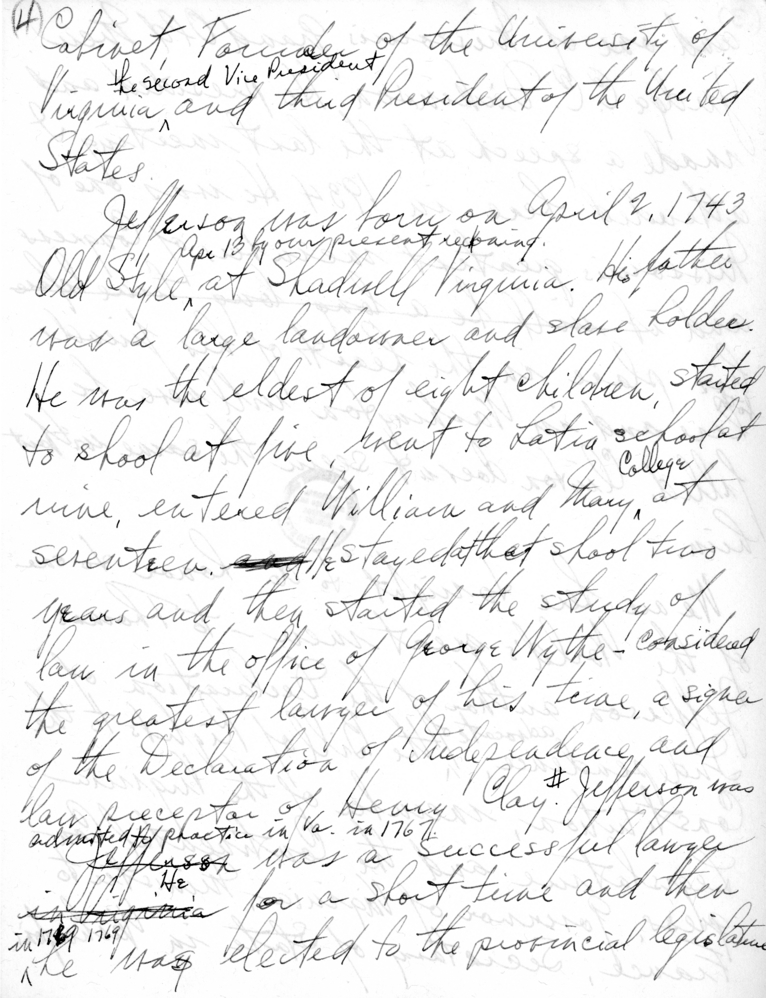 4
Cabinet, Founder of the University of
the second Vice President,
Virginia ^ and third President of the United
States.
Jefferson was born on April 2, 1743
Apr 13 by our present reckoning.
Old Style, ^ at Shadwell Virginia. His father
was a large landowner and slave holder.
He was the eldest of eight children, started
to shool at five, went to Latin school at
College
nine, entered William and Mary ^ at
seventeen. and He stayed at that shool two
years and then started the study of
law in the office of George Wythe - considered
the greatest lawyer of his time, a signer
of the Declaration of Independence, and
law preceptor of Henry Clay. # Jefferson was
admitted to practice in Va. in 1767.
Jefferson was a successful lawyer
He
in Virginia for a short time and then
in 1769 1769
^ he was elected to the provincial legislature